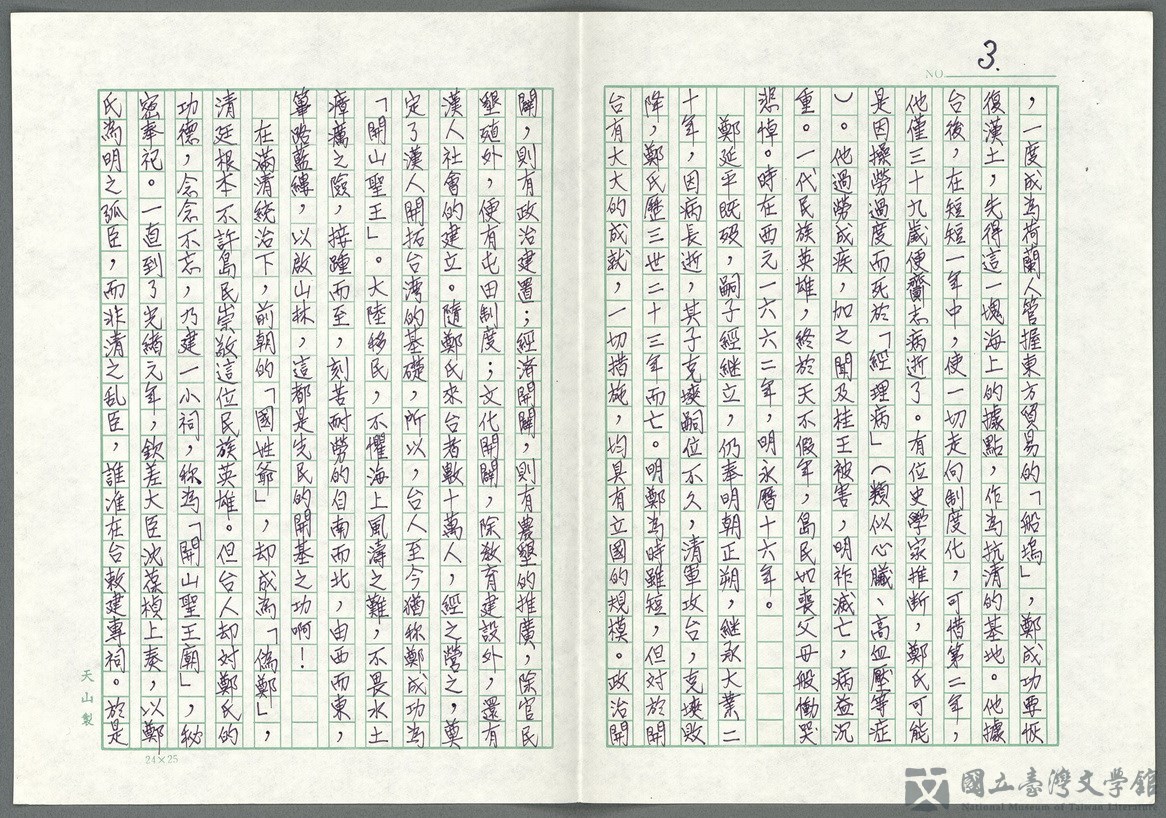 3.
NO
，一度成為荷蘭人管握東方貿易的「船塢」，鄭成功要恢
復漢土，先得這一塊海上的據點，作為抗清的基地。他據
台後，在短短一年中，使一切走向制度化，可惜第二年，
他僅三十九歲便齎志病逝了。有位史學家推斷，鄭氏可能
是因操勞過度而死於「經理病」（類似心臟、高血壓等症
）。他過勞成疾，加之聞及桂王被害，明祚滅亡，病益沉
重。一代民族英雄，終於天不假年，島民如喪父母般慟哭
悲悼。時在西元一六六二年，明永曆十六年。
鄭延平既歿，嗣子經繼立，仍奉明朝正朔，繼承大業二
十年，因病長逝，其子克塽嗣位不久，清軍攻台，克塽敗
降，鄭氏歷三世二十三年而亡。明鄭為時雖短，但对於開
台有大大的成就，一切措施，均具有立國的規模。政治開
闢，則有政治建置；經済開闢，則有農墾的推廣，除官民
墾殖外，便有屯田制度；文化開闢，除敎育建設外，還有
漢人社會的建立。隨鄭氏來台者數十萬人，經之營之，奠
定了漢人開拓台湾的基礎，所以，台人至今猶称鄭成功為
「開山聖王」。大陸移民，不懼海上風濤之難，不畏水土
瘴癘之險，接踵而至，刻苦耐勞的自南而北，由西而東，
篳路藍縷，以啟山林，這都是先民的開基之功啊！
在滿清統治下，前朝的「國姓爺」，却成為「偽鄭」，
清廷根本不許島民崇敬這位民族英雄。但台人却对鄭氏的
功德，念念不忘，乃建一小祠，称為「開山聖王廟」，秘
密奉祀。一直到了光緒元年，欽差大臣沈葆楨上奏，以鄭
氏為明之孤臣，而非清之乱臣，誰准在台敕建專祠。於是
天山製
24×25
國立臺灣文學館
National Museum of Taiwan Literature